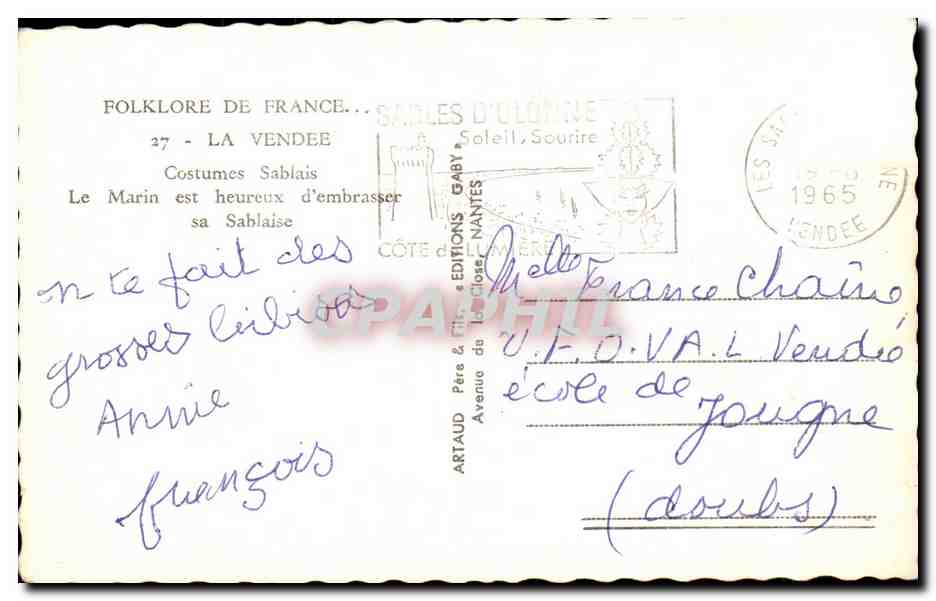 FOLKLORE DE FRANCE...
27 - LA VENDEE
Costumes Sablais
Le Marin est heureux d'embrasser
sa Sablaise
SABLES D'OLONNE
Soleil, Sourire
CÔTE de LUMIÈRE
LES SAB NE
1965
VENDEE
on te fait des
grosses bibises
Annie
françois
ARTAUD Père & Fils, « EDITIONS GABY »
Avenue de la Close, NANTES
CPAPHIL
Melle France Chaîne
U.F.O.V.A.L Vendée
école de
Jougne
(doubs)